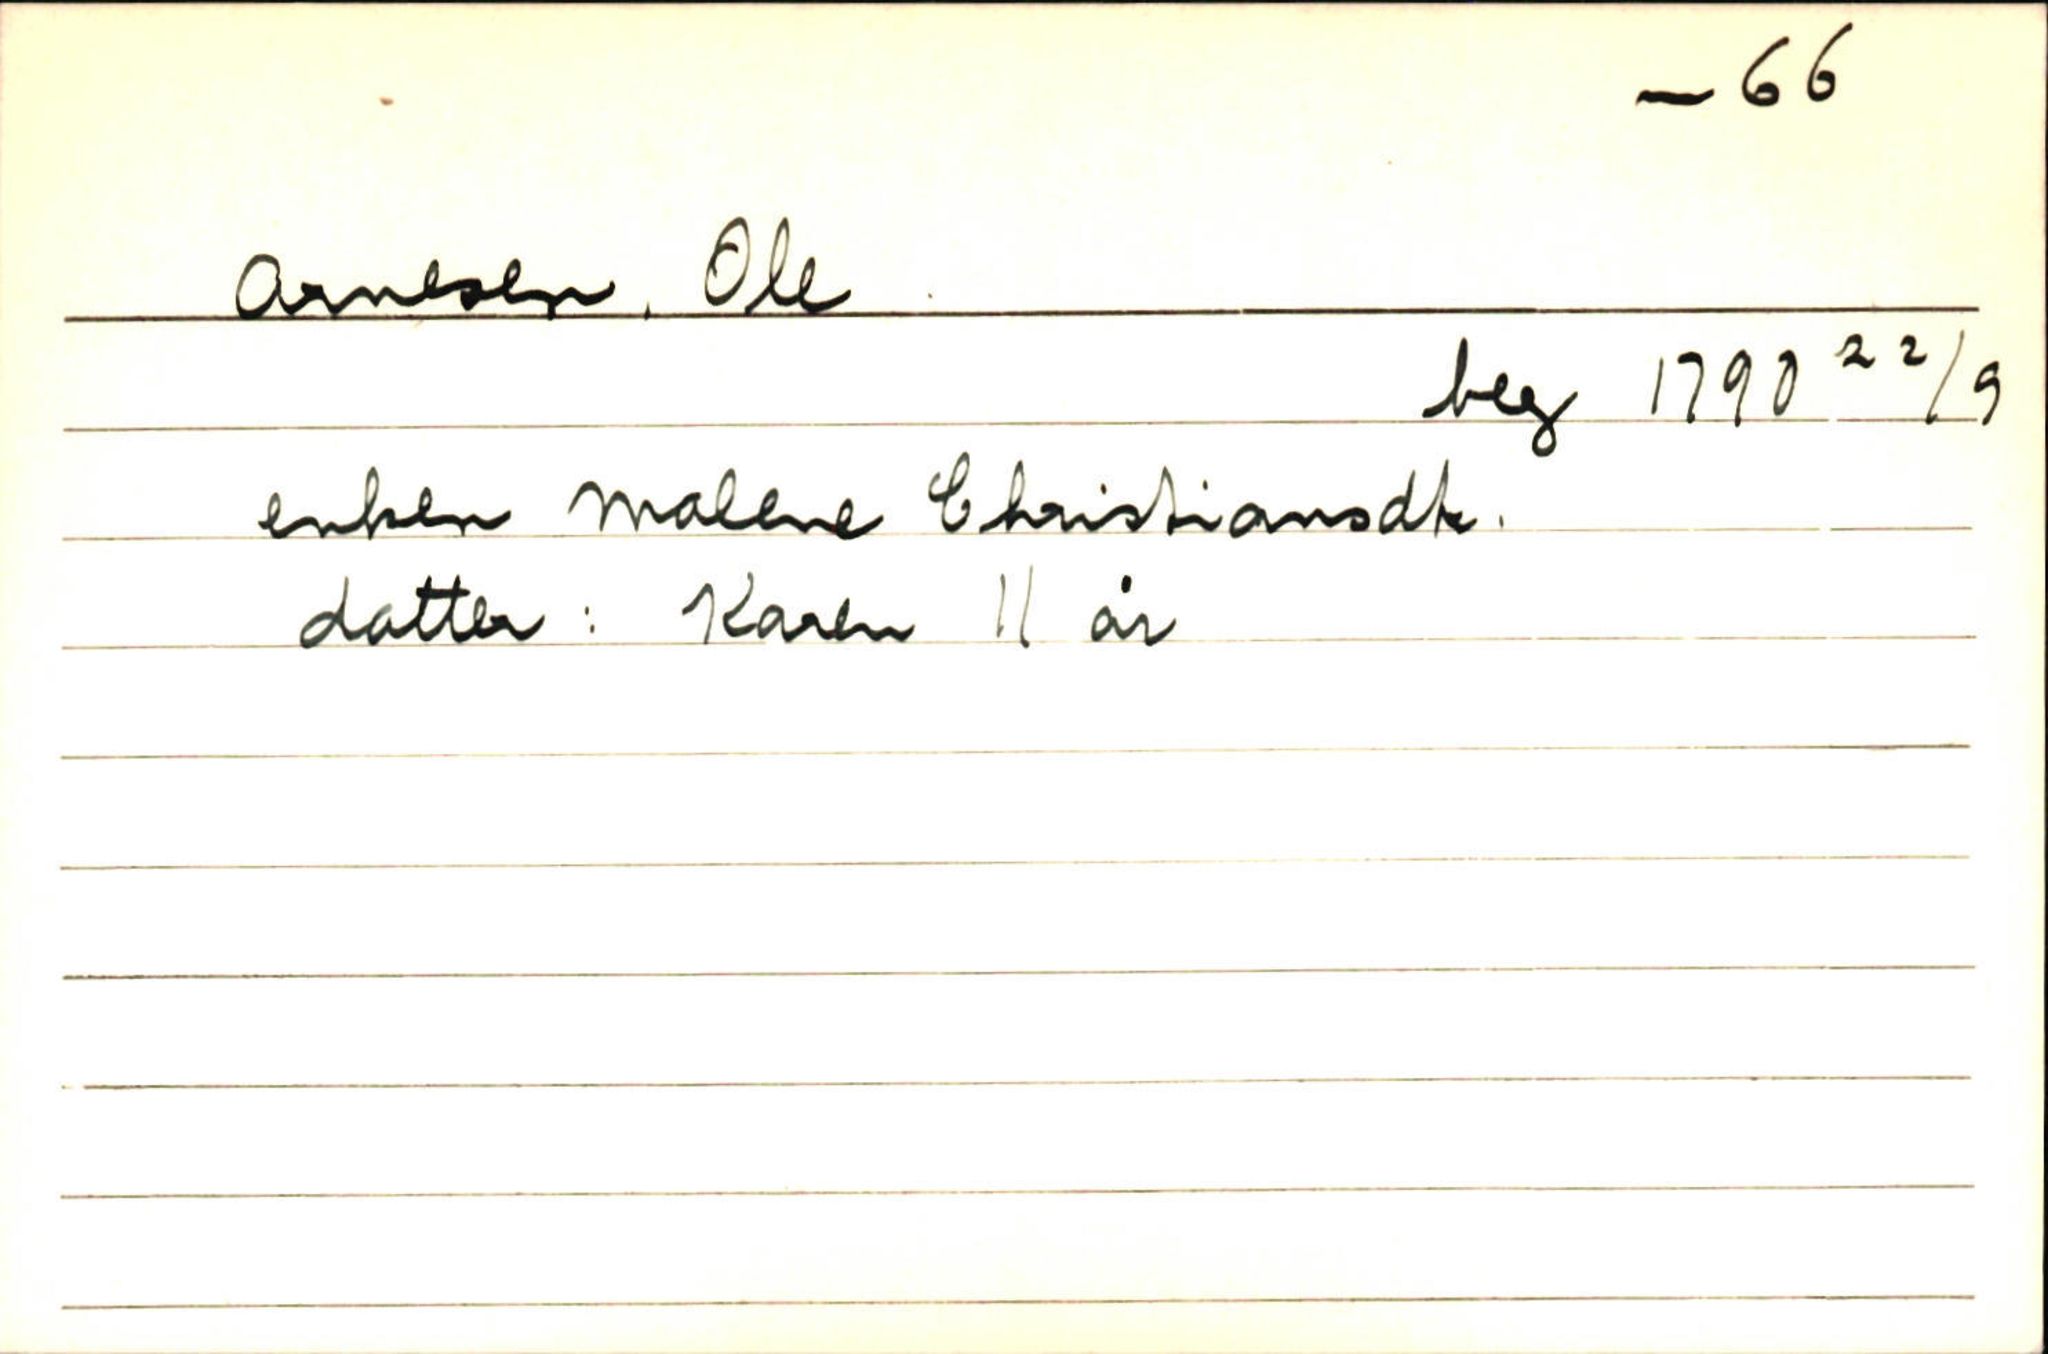 — 66
Arnesen, Ole
beg 1790 22/9
enken Malene Christiansdtr.
datter: Karen 11 år